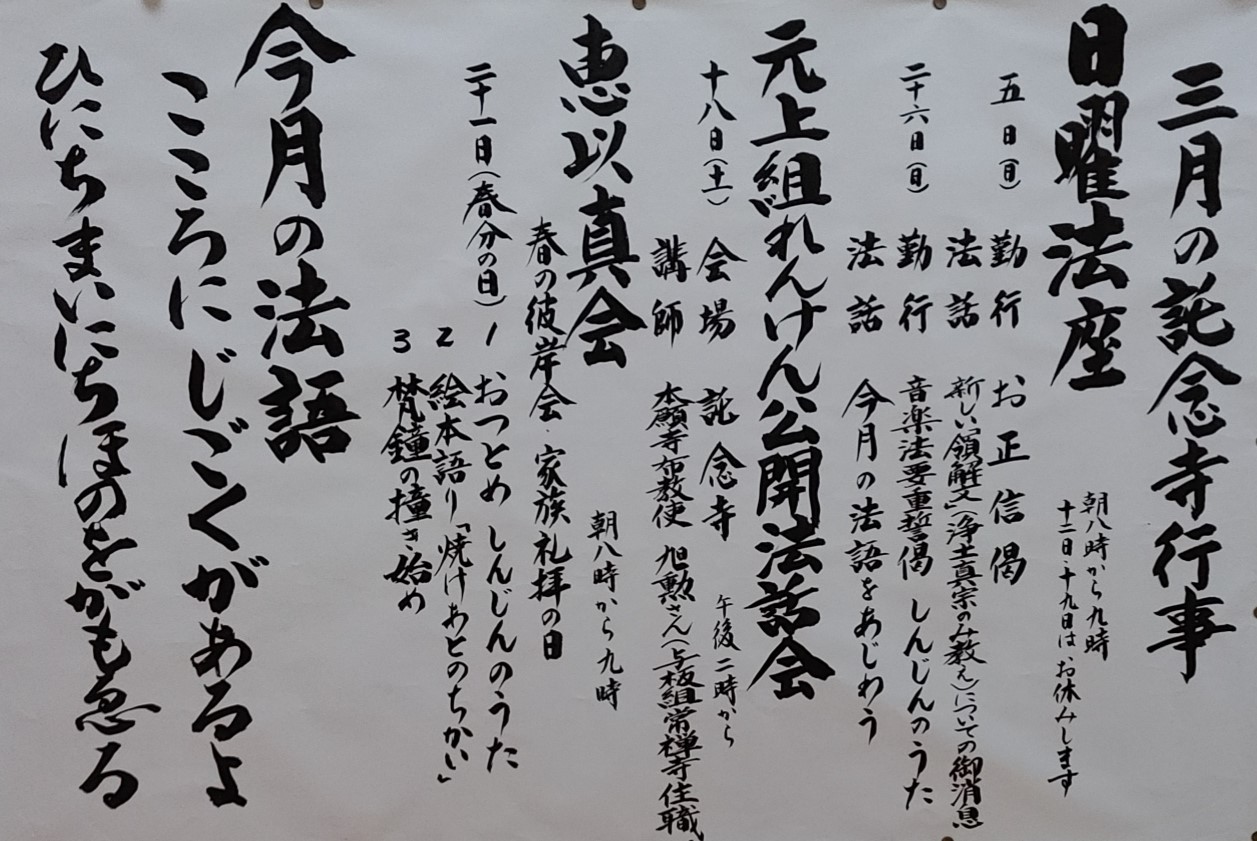 三月の託念寺行事
日曜法座
朝八時から九時
十二日・十九日はお休みします
五日(日)
勤行 お正信偈
法話 新しい「領解文」(浄土真宗のみ教え)についての御消息
二十六日(日)
勤行 音楽法要重誓偈 しんじんのうた
法話 今月の法語をあじわう
元上組れんけん公開法話会
午後二時から
十八日(土)
会場 託念寺
講師 本願寺布教使 旭勲さん(与板組常禅寺住職)
恵以真会
朝八時から九時
春の彼岸会・家族礼拝の日
二十一日(春分の日)
1 おつとめ しんじんのうた
2 絵本語り「焼けあとのちかい」
3 梵鐘の撞き始め
今月の法語
こころにじごくがあるよ
ひにちまいにちほのをがもゑる